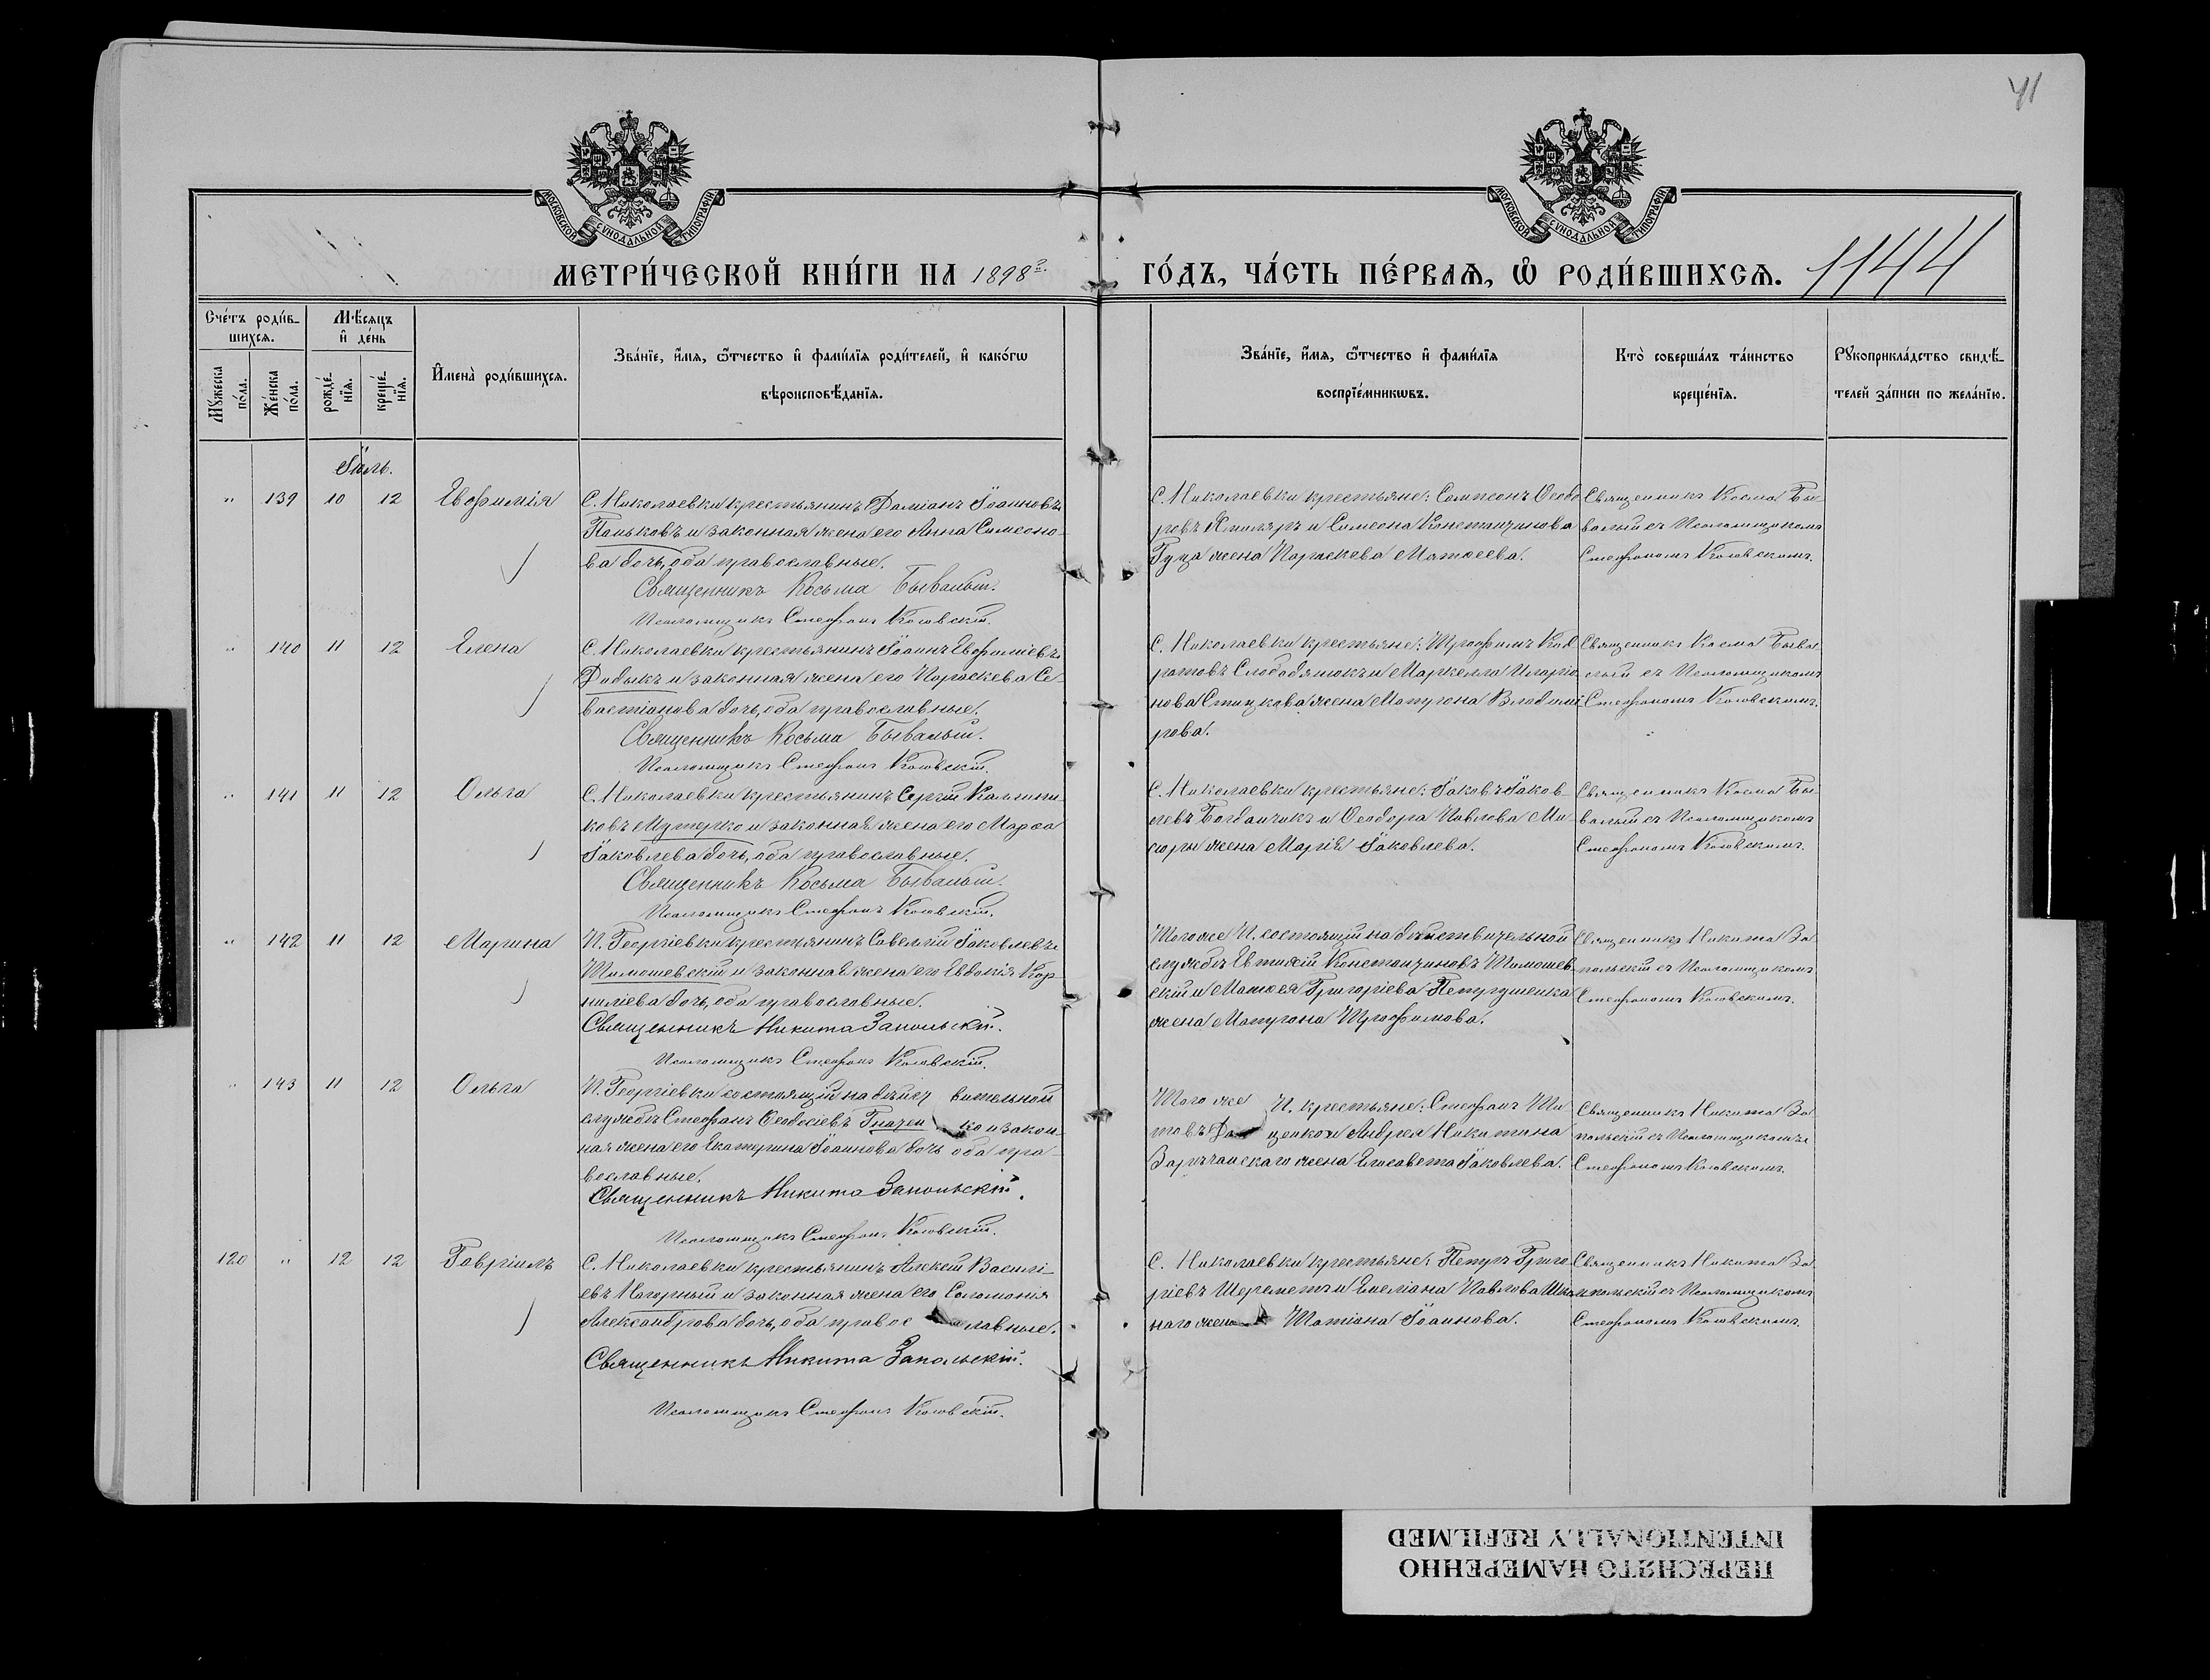 41
МОСКОВСКОЙ СѴНОДАЛЬНОЙ ТИПОГРАФІИ
МОСКОВСКОЙ СѴНОДАЛЬНОЙ ТИПОГРАФІИ
МЕТРИ́ЧЕСКОЙ КНИ́ГИ НА 1898 г.
ГО́ДЪ, ЧА́СТЬ ПЕ́РВАѦ, Ѡ҆ РОДИ́ВШИХСѦ. 1144
Сче́тъ роди́в-
шихсѧ.
Мѹ́жеска по́ла.
Же́нска по́ла.
Мѣ́сѧцъ
и҆ де́нь
рожде́-
нїѧ.
креще́-
нїѧ.
И҆мена̀ роди́вшихсѧ.
Зва́нїе, и҆́мѧ, ѻ҆́тчество и҆ фами́лїѧ роди́телей, и҆ како́гѡ
вѣроисповѣ́данїѧ.
Зва́нїе, и҆́мѧ, ѻ҆́тчество и҆ фами́лїѧ
воспрїе́мникѡвъ.
Кто̀ соверша́лъ та́инство
креще́нїѧ.
Рꙋкоприкла́дство свидѣ́-
телей за́писи по жела́нїю.
Іюль.
" 139 10 12 Евфимія
С. Николаевки крестьянинъ Даміанъ Іоанновъ
Паньковъ и законная жена его Анна Симеоно-
ва дочь, оба православные.
Священникъ Косьма Бывалый.
Псаломщикъ Стефанъ Козовскій.
С. Николаевки крестьяне: Сампсонъ Ѳеодо
ровъ Столяръ и Симеона Константинова
Гуца жена Параскева Матѳеева.
Священникъ Косма Бы-
валый съ Псаломщикомъ
Стефаномъ Козовскимъ.
" 140 11 12 Елена
С. Николаевки крестьянинъ Іоаннъ Евфиміевъ
Дидыкъ и законная жена его Параскева Се-
вастіанова дочь, оба православные.
Священникъ Косьма Бывалый.
Псаломщикъ Стефанъ Козовскій.
С. Николаевки крестьяне: Трофимъ Код
ратовъ Слободянюкъ и Маркелла Иларіо
нова Стицкова жена Матрона Владими
рова.
Священникъ Косма Быва
лый съ Псаломщикомъ
Стефаномъ Козовскимъ.
" 141 11 12 Ольга
С. Николаевки крестьянинъ Сергій Каллини-
ковъ Мутерко и законная жена его Марѳа
Іаковлева дочь, оба православные.
Священникъ Косьма Бывалый.
Псаломщикъ Стефанъ Козовскій.
С. Николаевки крестьяне: Іаковъ Іаков-
левъ Богданчикъ и Ѳеодора Павлова Ми-
сюры жена Марія Іаковлева.
Священникъ Косма Бы-
валый съ Псаломщикомъ
Стефаномъ Козовскимъ.
" 142 11 12 Марина
П. Георгіевки крестьянинъ Савелій Іаковлевъ
Томошевскій и законная жена его Евдокія Кор-
ниліева дочь, оба православные.
Священникъ Никита Запольскій.
Псаломщикъ Стефанъ Козовскій.
Того же П. состоящій на дѣйствительной
службѣ Евтихій Константиновъ Томошев
скій и Матѳея Григоріева Петрушенка
жена Матрона Трофимова.
Священникъ Никита За-
польскій съ Псаломщикомъ
Стефаномъ Козовскимъ.
" 143 11 12 Ольга
П. Георгіевки состоящій на дѣйст вительной
службѣ Стефанъ Ѳеодосіевъ Гнатен ко и закон-
ная жена его Екатерина Іоаннова дочь оба пра-
вославные.
Священникъ Никита Запольскій.
Псаломщикъ Стефанъ Козовскій.
Того же П. крестьяне: Стефанъ Ти-
товъ ценко и Андрея Никитина
Зарѣчанскаго жена Елисавета Іаковлева.
Священникъ Никита За-
польскій съ Псаломщикомъ
Стефаномъ Козовскимъ.
120 " 12 12 Гавріилъ
С. Николаевки крестьянинъ Алексій Василі-
евъ Нагорный и законная жена его Соломонія
Александрова дочь, оба правос лавные.
Священникъ Никита Запольскій.
Псаломщикъ Стефанъ Козовскій.
С. Николаевки крестьяне: Петръ Григо
ріевъ Шереметъ и Емеліана Павлова
наго жена Татіана Іоаннова.
Священникъ Никита За-
польскій съ Псаломщикомъ
Стефаномъ Козовскимъ.
ПЕРЕСНЯТО НАМЕРЕННО
INTENTIONALLY REFILMED